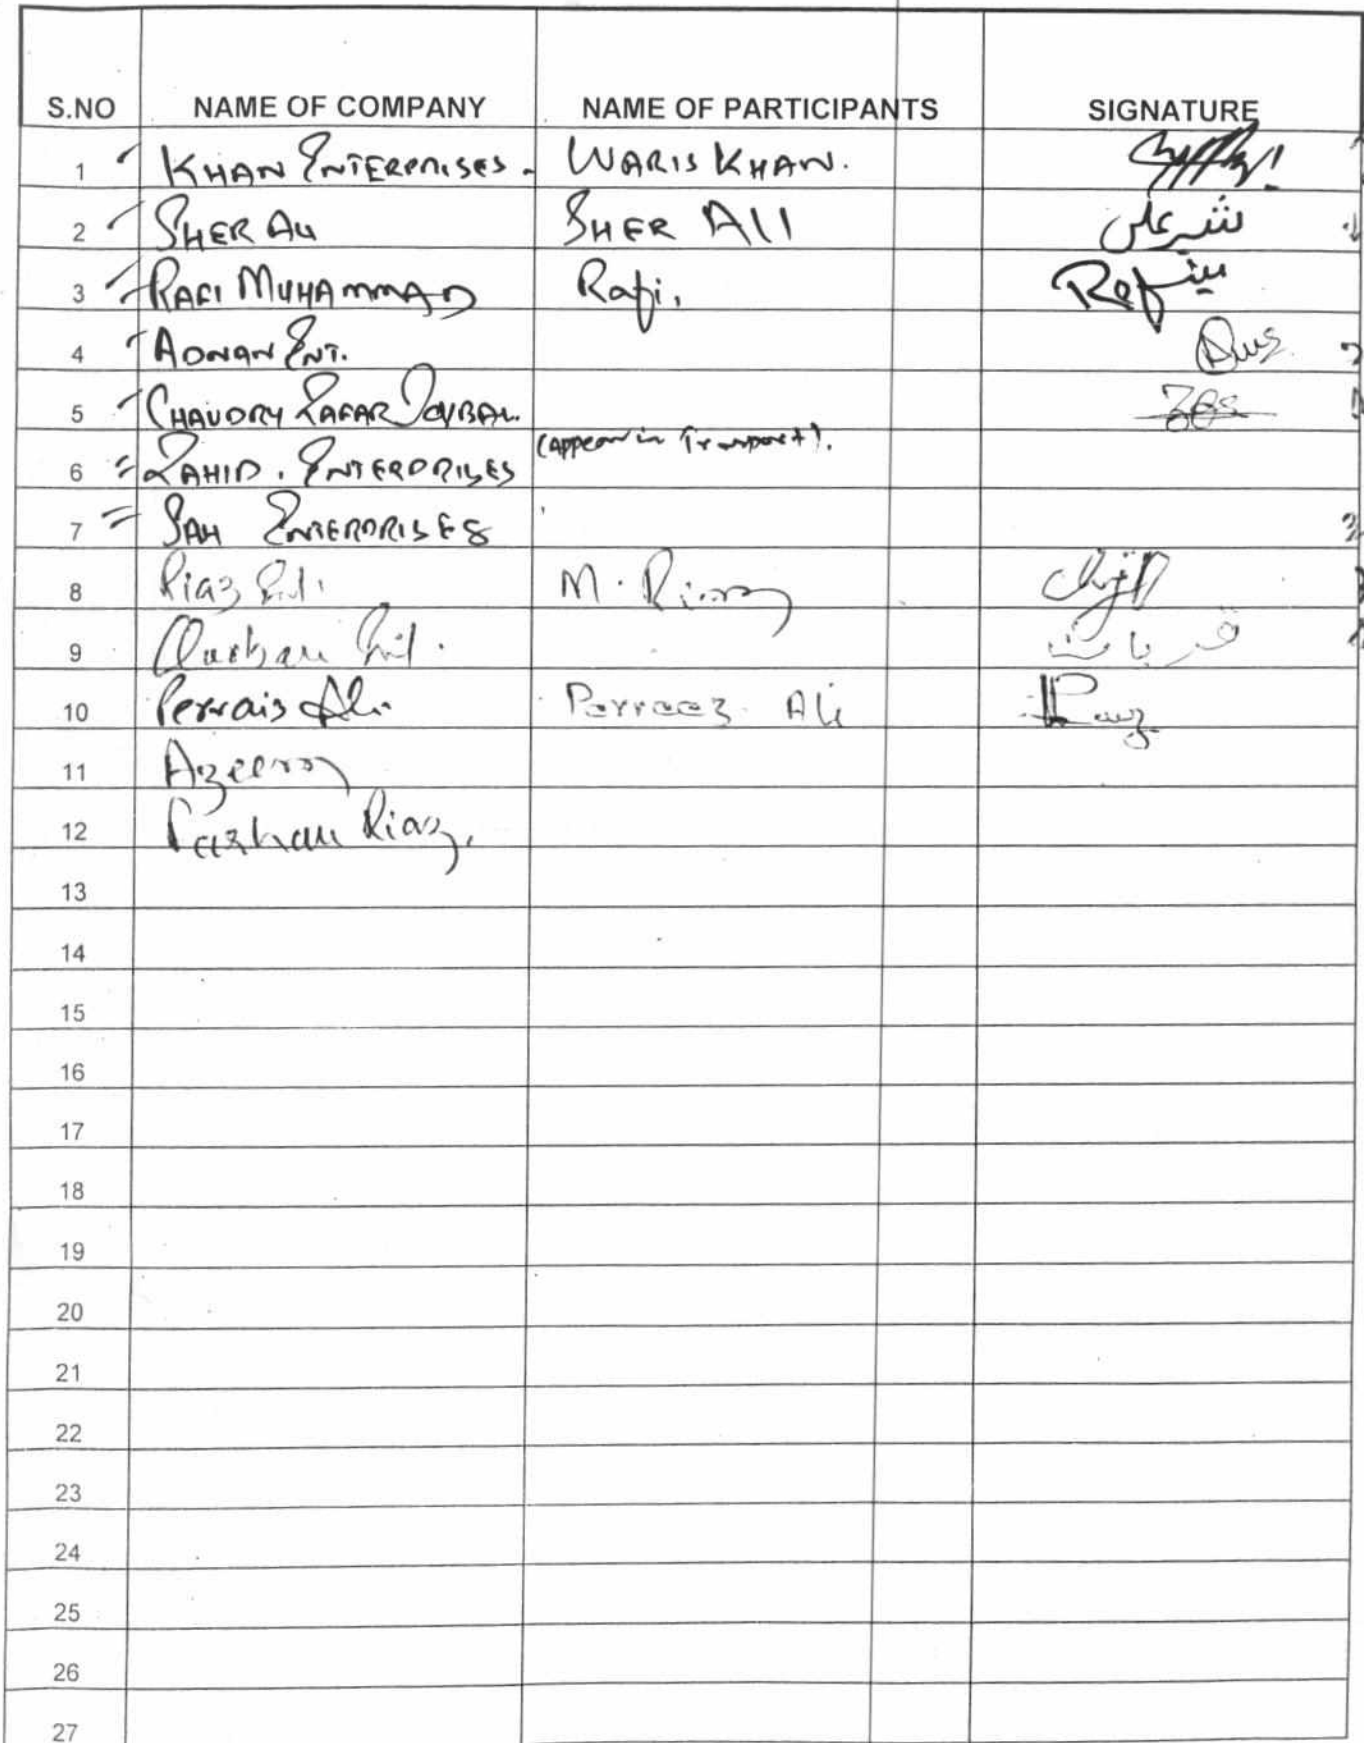 S.NO NAME OF COMPANY NAME OF PARTICIPANTS SIGNATURE
1 KHAN ENTERPRISES. WARIS KHAN.
2 SHER ALI SHER ALI شیر علی
3 RAFI MUHAMMAD Rafi.
4 ADNAN ENT.
5 CHAUDRY ZAFAR IQBAL.
6 ZAHID. ENTERPRISES (appear in Transport).
7 SAH ENTERPRISES
8 Riaz M. Riaz
9 Qurban
10 Pervaiz Ali Perveez Ali
11 Azeem
12 Farhan Riaz.
13
14
15
16
17
18
19
20
21
22
23
24
25
26
27